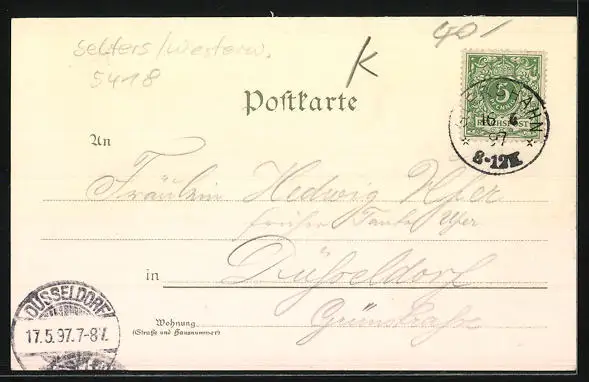 Selters/Westerw.
5418
K
40/
Postkarte
5
REICHSPOST
16 97
8-12V
An
Fräulein Hedwig
früher Tante
in Düsseldorf
Wohnung
(Straße und Hausnummer)
Grünstraße
DÜSSELDORF
17.5.97.7-8V.